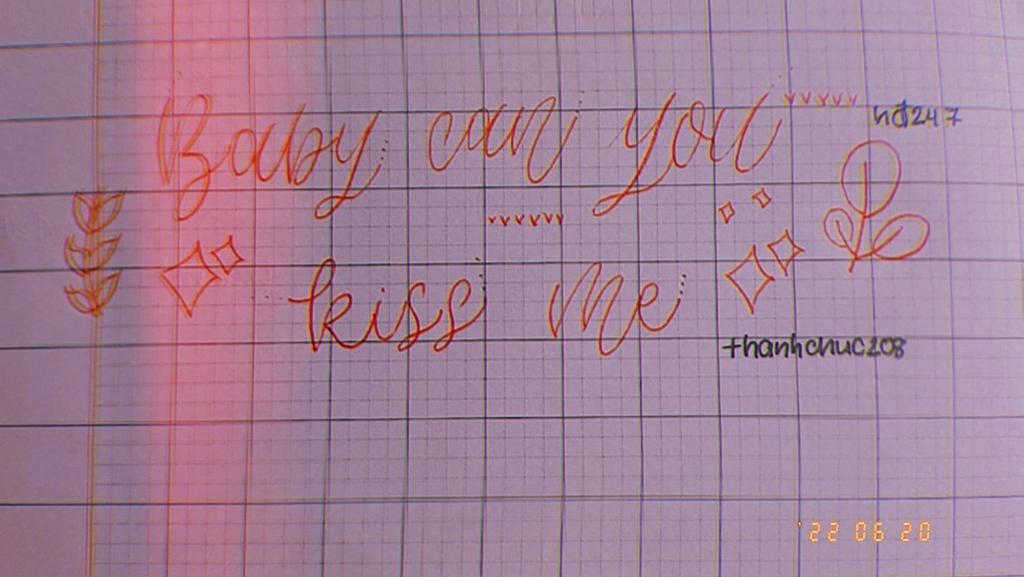 Baby can you
hđ247
kiss me
thanhchuc208
'22 06 20